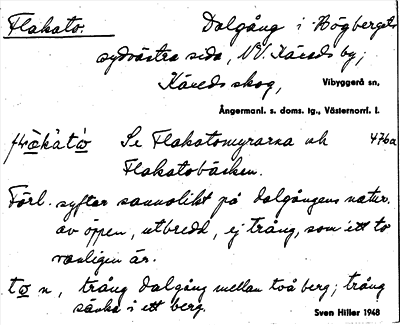 Flakato. Dalgång i Högbergets
sydvästra sida, NV. Käxeds by,
Käxeds skog, Vibyggerå sn,
Ångermanl. s. doms. lg., Västernorrl. l.
Se Flakatomyrarna och 476a
Flakatobäcken.
Förl. syftar sannolikt på dalgångens natur
av öppen, utbredd, ej trång, som ett to
vanligen är.
to n, trång dalgång mellan två berg; trång
sänka i ett berg. Sven Hiller 1948